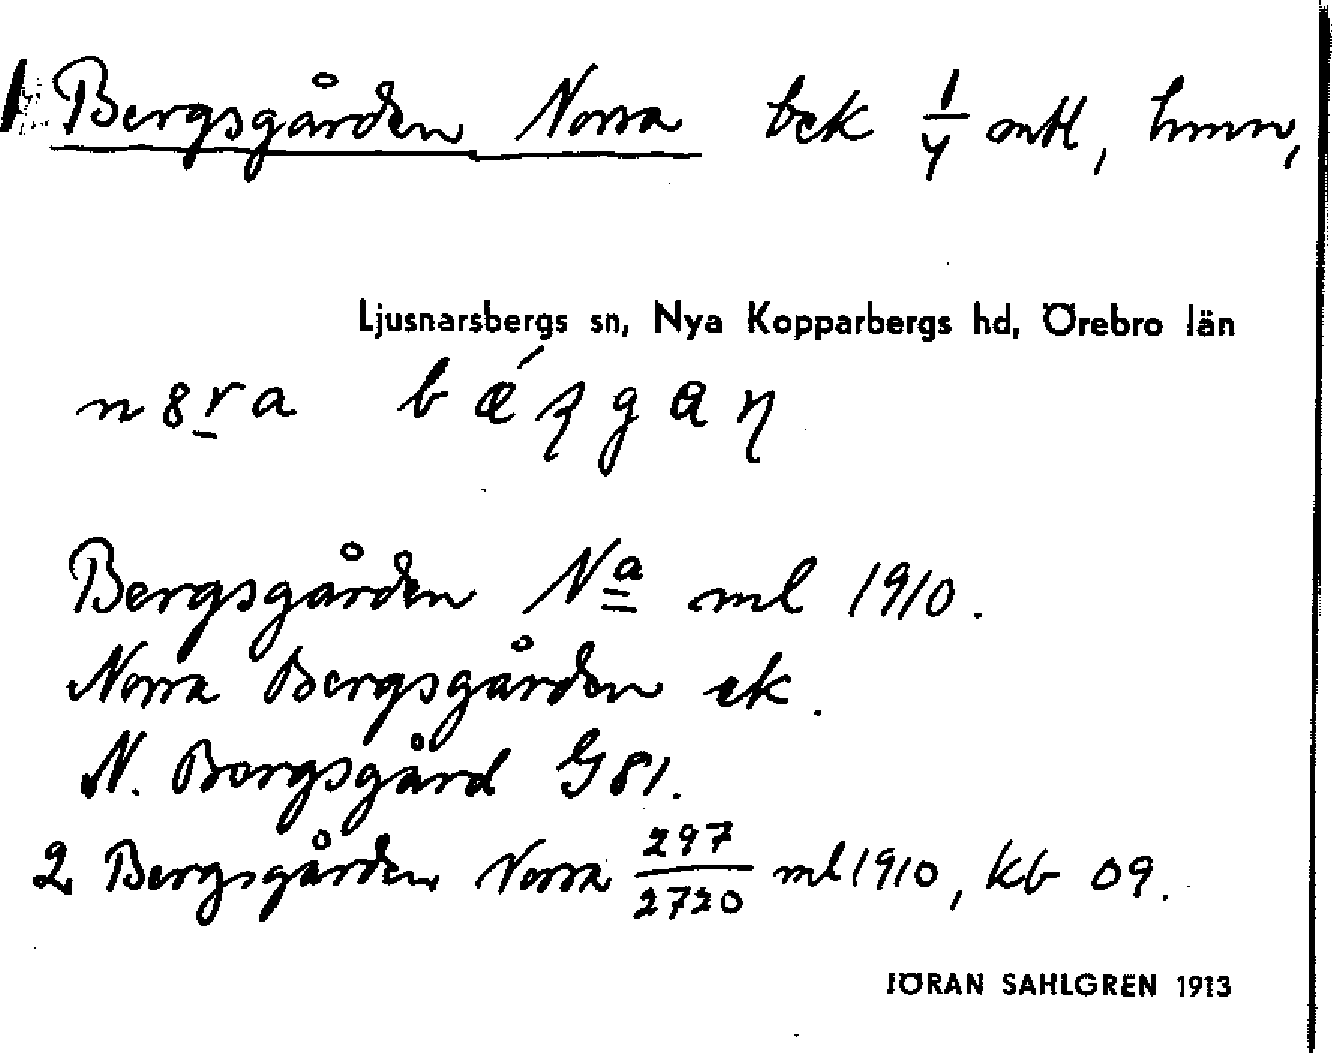 1 Bergsgården Norra bek 1/4 mtl, hmn,
Ljusnarsbergs sn, Nya Kopparbergs hd, Örebro län
Bergsgården Nª ml 1910.
Norra Bergsgården ek.
N. Bergsgård G 81.
2 Bergsgården Norra 297/2720 ml 1910, kb 09.
JÖRAN SAHLGREN 1913